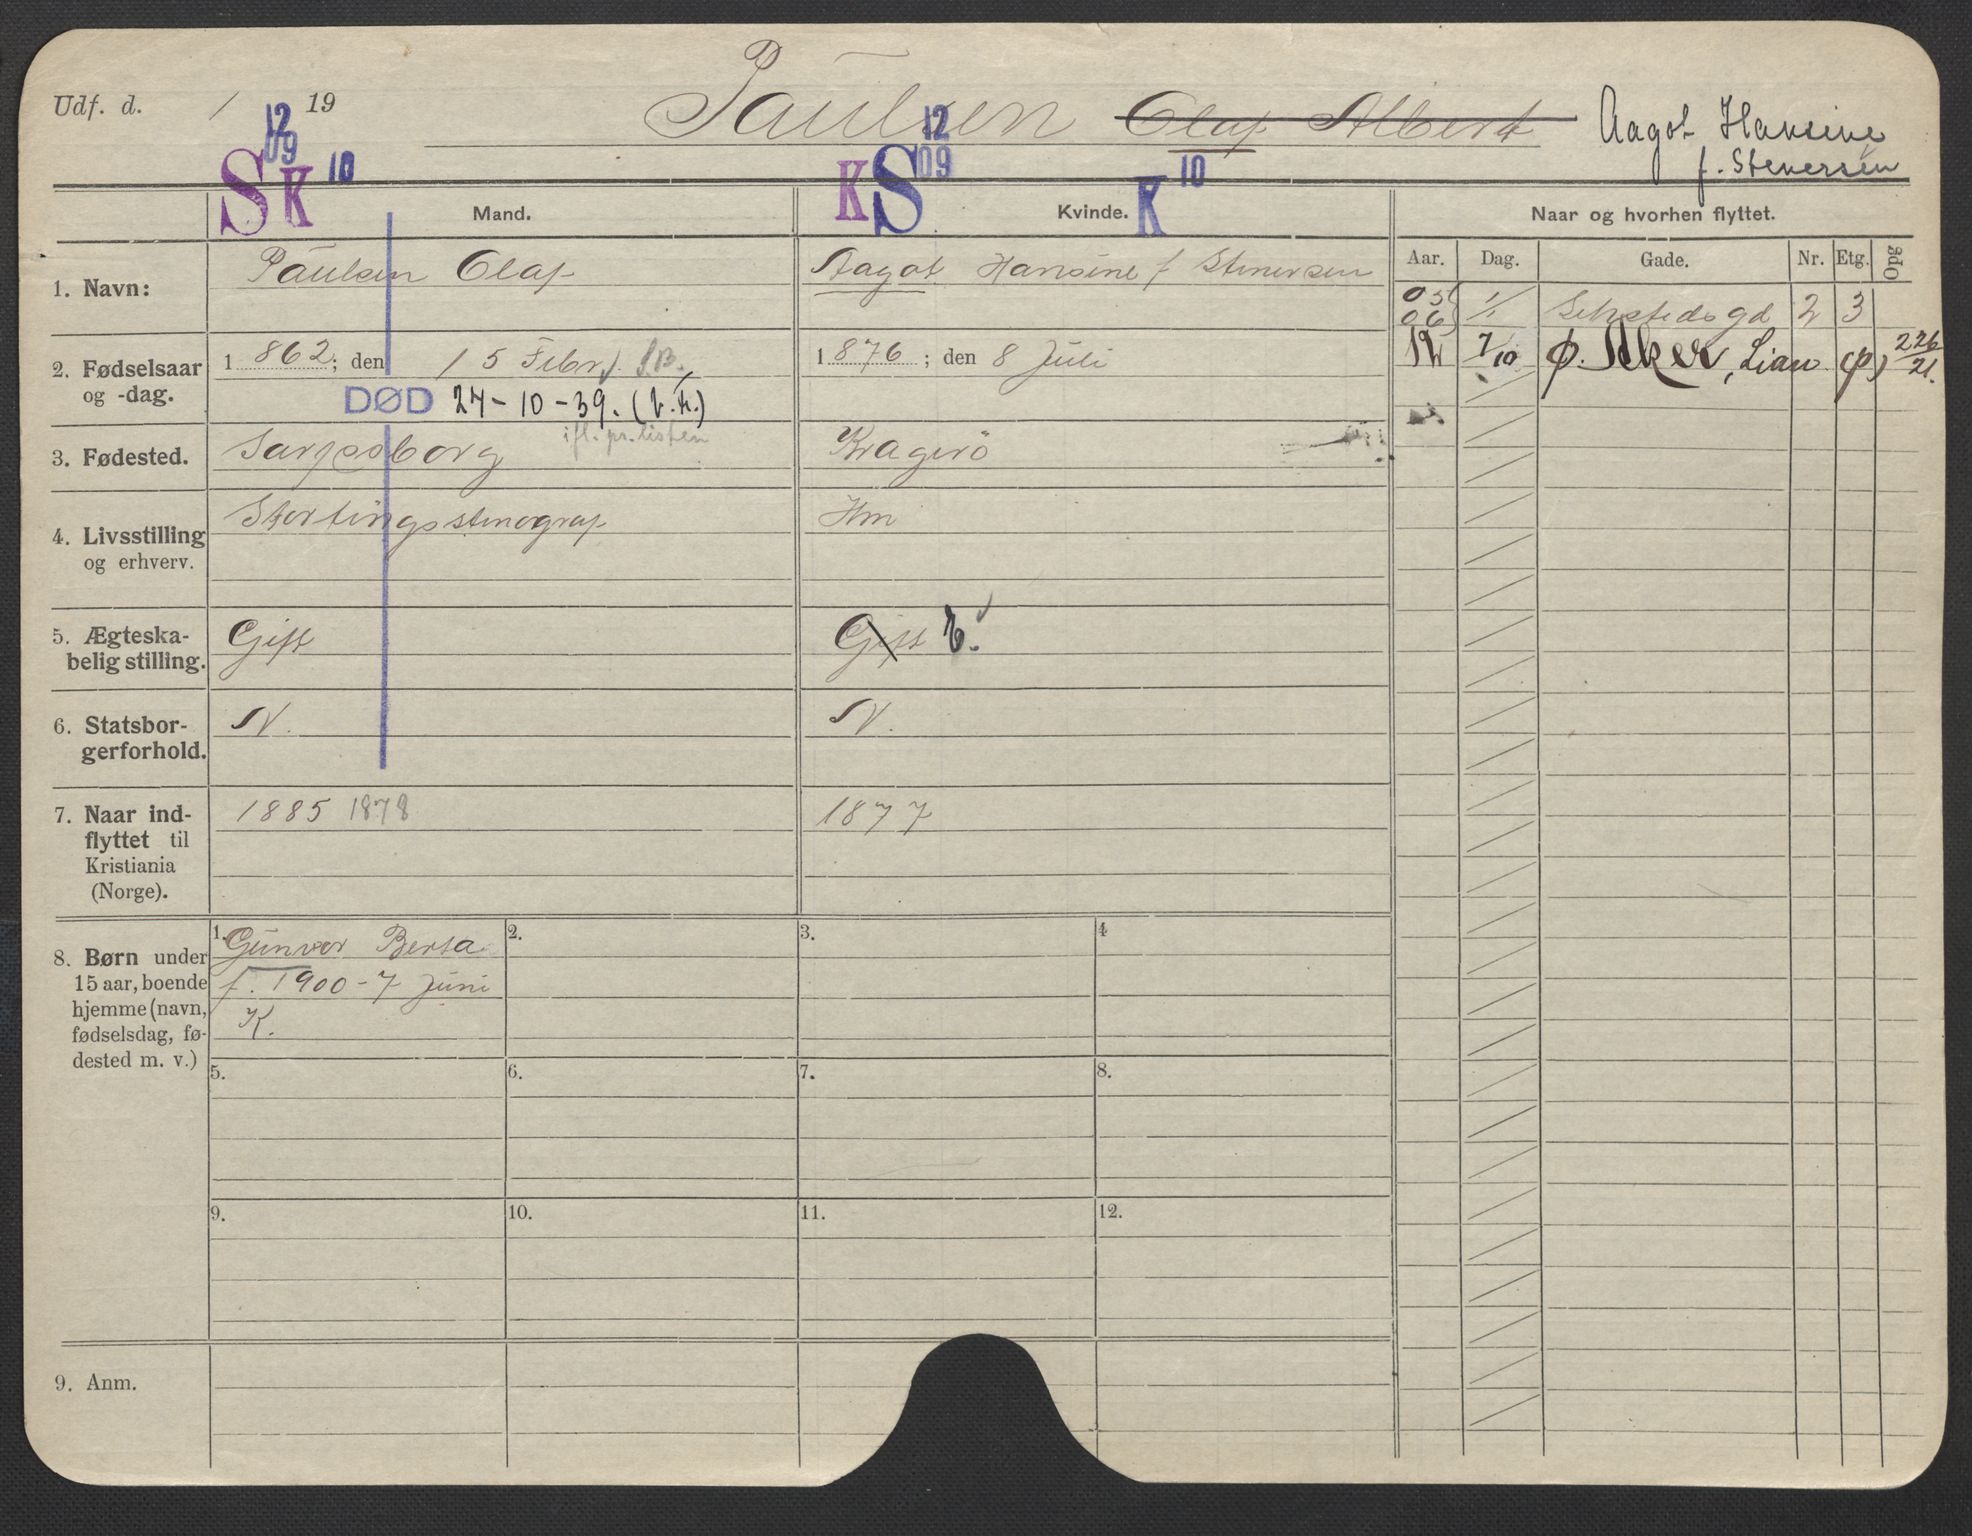 Udf. d. / 19
Paulsen Olaf Albert Aagot Hansine
f. Stenersen
12 09 S K 10
K S 12 09 K 10
Mand. Kvinde. Naar og hvorhen flyttet.
Aar. Dag. Gade. Nr. Etg. Opg
1. Navn: Paulsen Olaf Aagot Hansine f Stenersen
05 1/1 Sehstedsgd 2 3
06
2. Fødselsaar og -dag. 1862; den 15 Febr. 1876; den 8 Juli
12 7/10 φ. Aker, Lian (φ) 226/21.
DØD 24-10-39. (v.k.)
ifl. pr. listen
3. Fødested. Sarpsborg Kragerö
4. Livsstilling og erhverv. Stortingsstenograf Hm
5. Ægteska-
belig stilling. Gift Gift E.
6. Statsbor-
gerforhold. N. N.
7. Naar ind-
flyttet til
Kristiania
(Norge). 1885 1878 1877
8. Børn under
15 aar, boende
hjemme (navn,
fødselsdag, fø-
dested m. v.)
1. Gunvor Berta
f. 1900 - 7 Juni
K.
2. 3. 4
5. 6. 7. 8.
9. 10. 11. 12.
9. Anm.